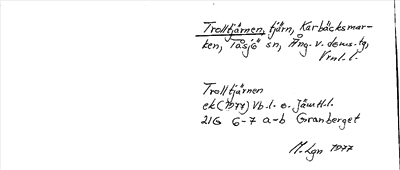 Trolltjärnen, tjärn, Karbäcksmar-
ken, Tåsjö sn, Ång. v. doms.-tg,
Vrml. l.
Trolltjärnen
ek (1977) Vb. l. o. Jämtl. l.
21G 6-7 a-b Granberget
M. Lgn 1977